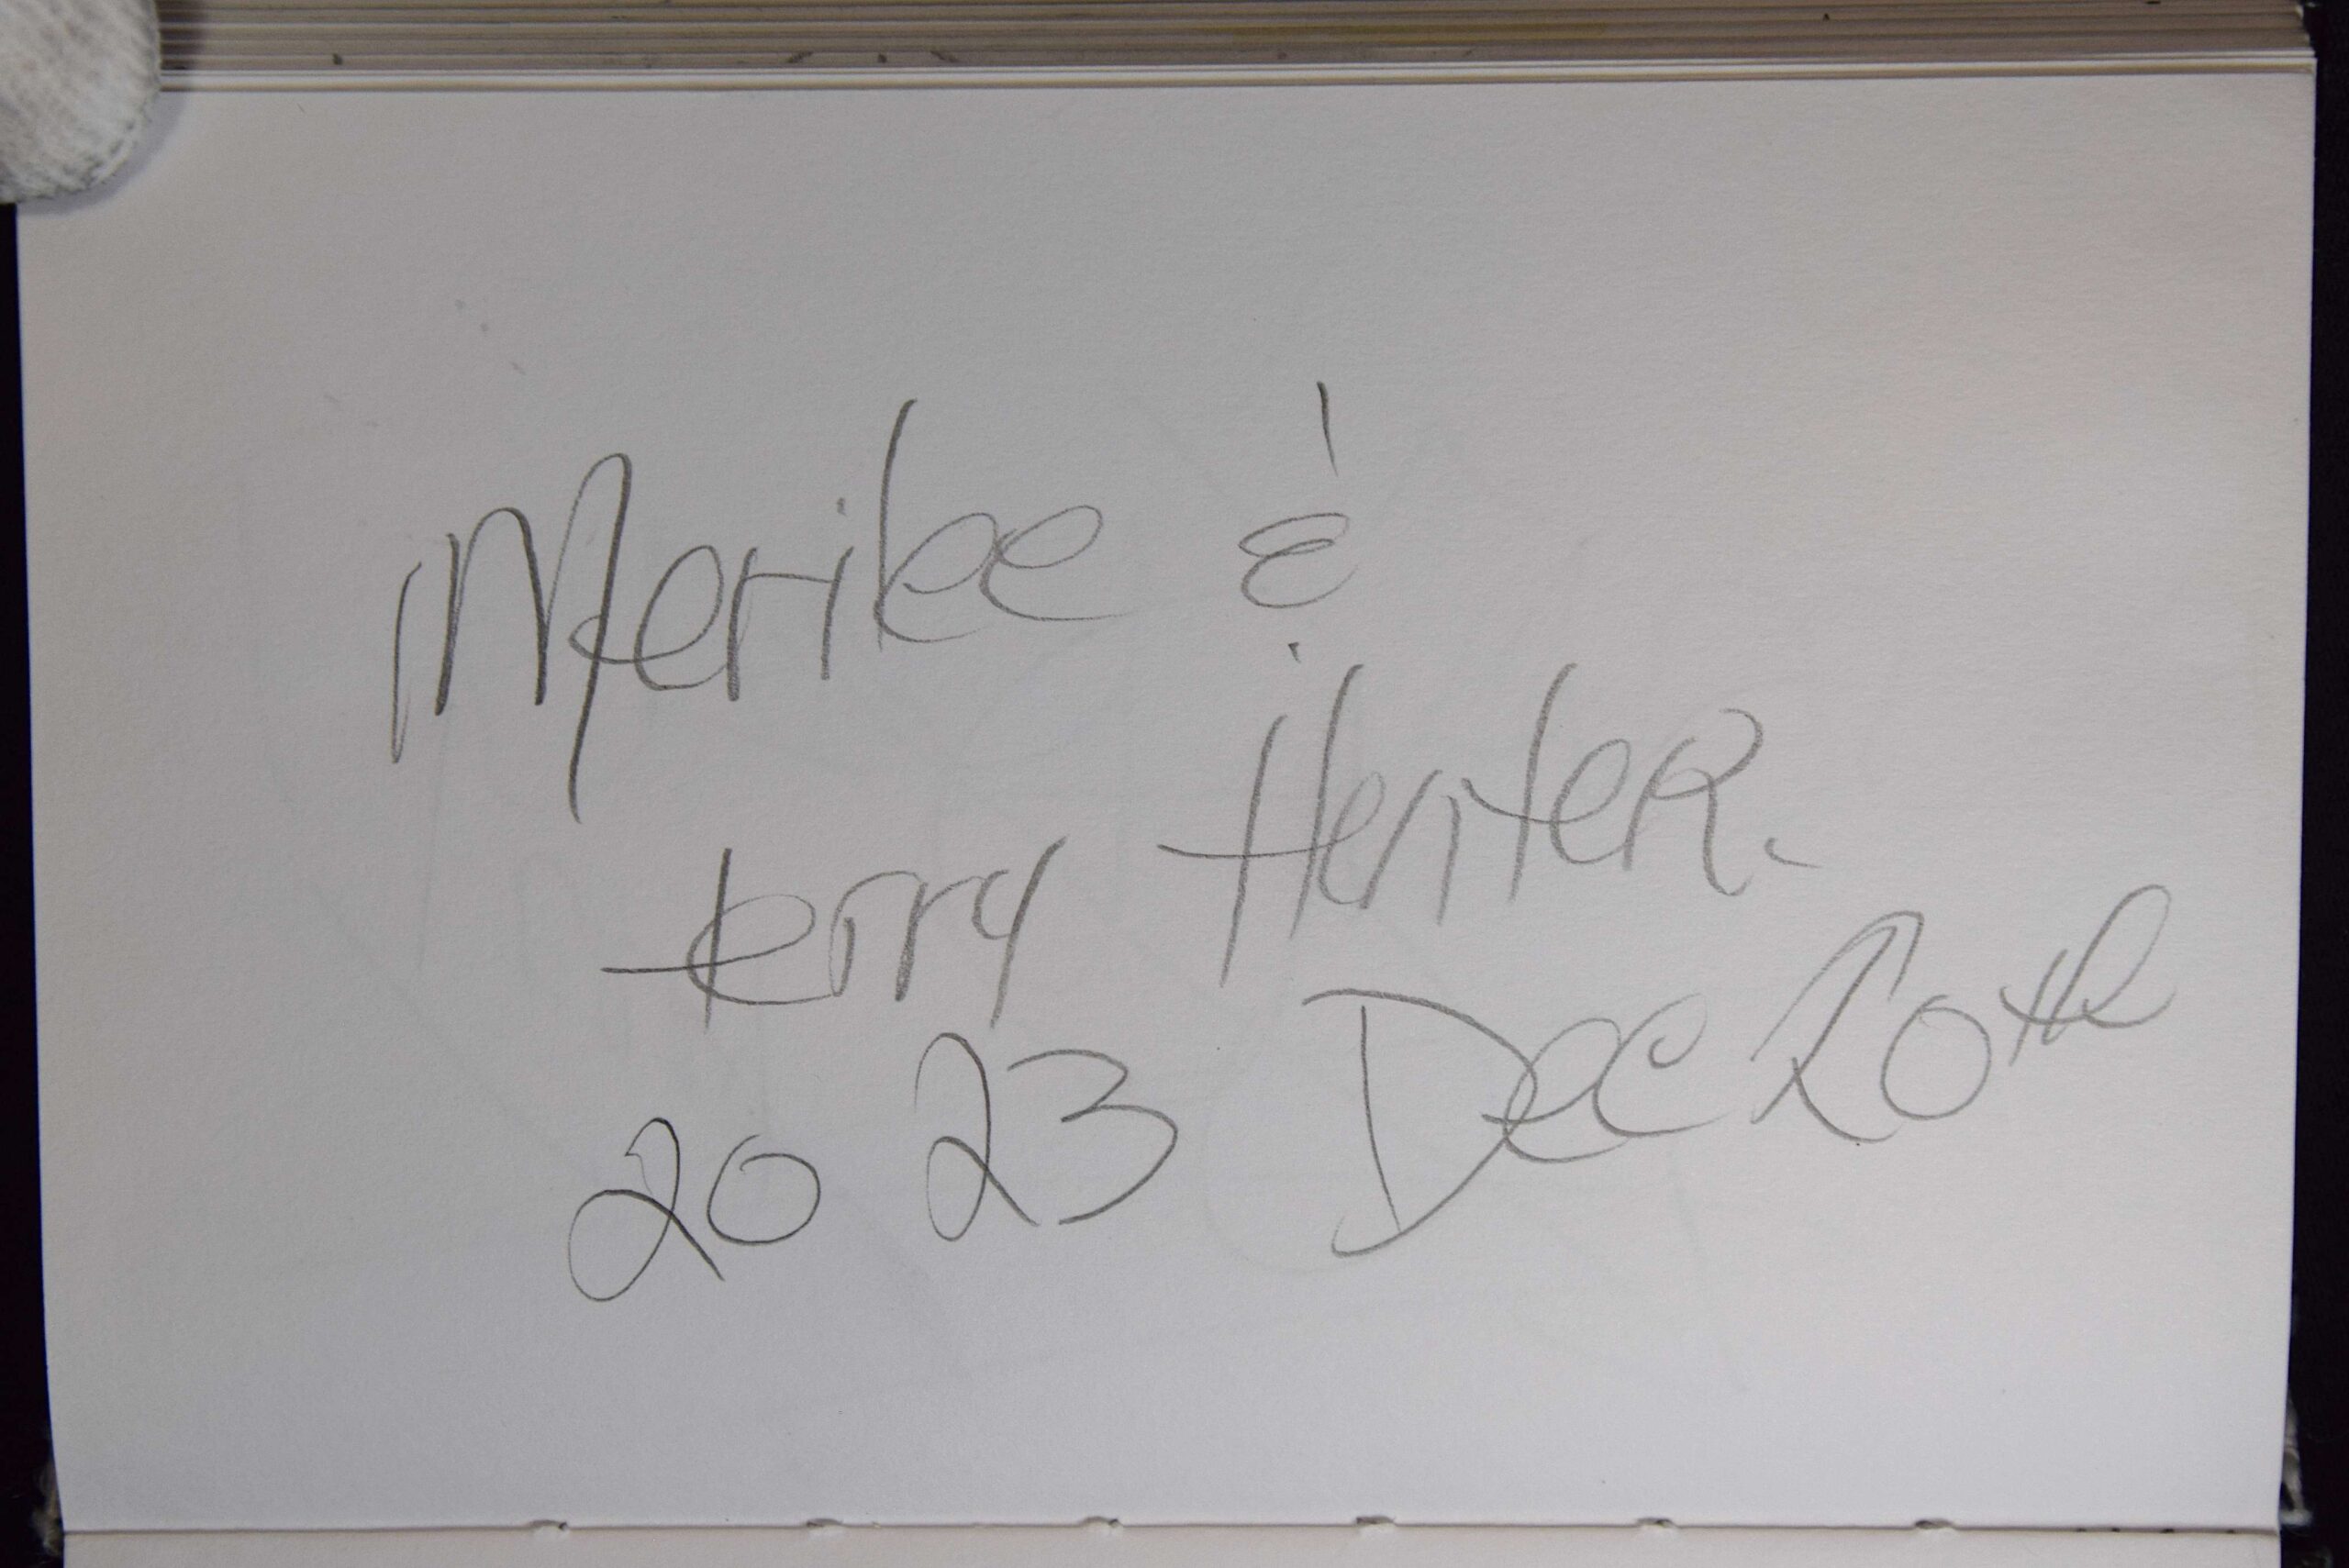 Merilee &
terry Henter.
2023 Dec 20th